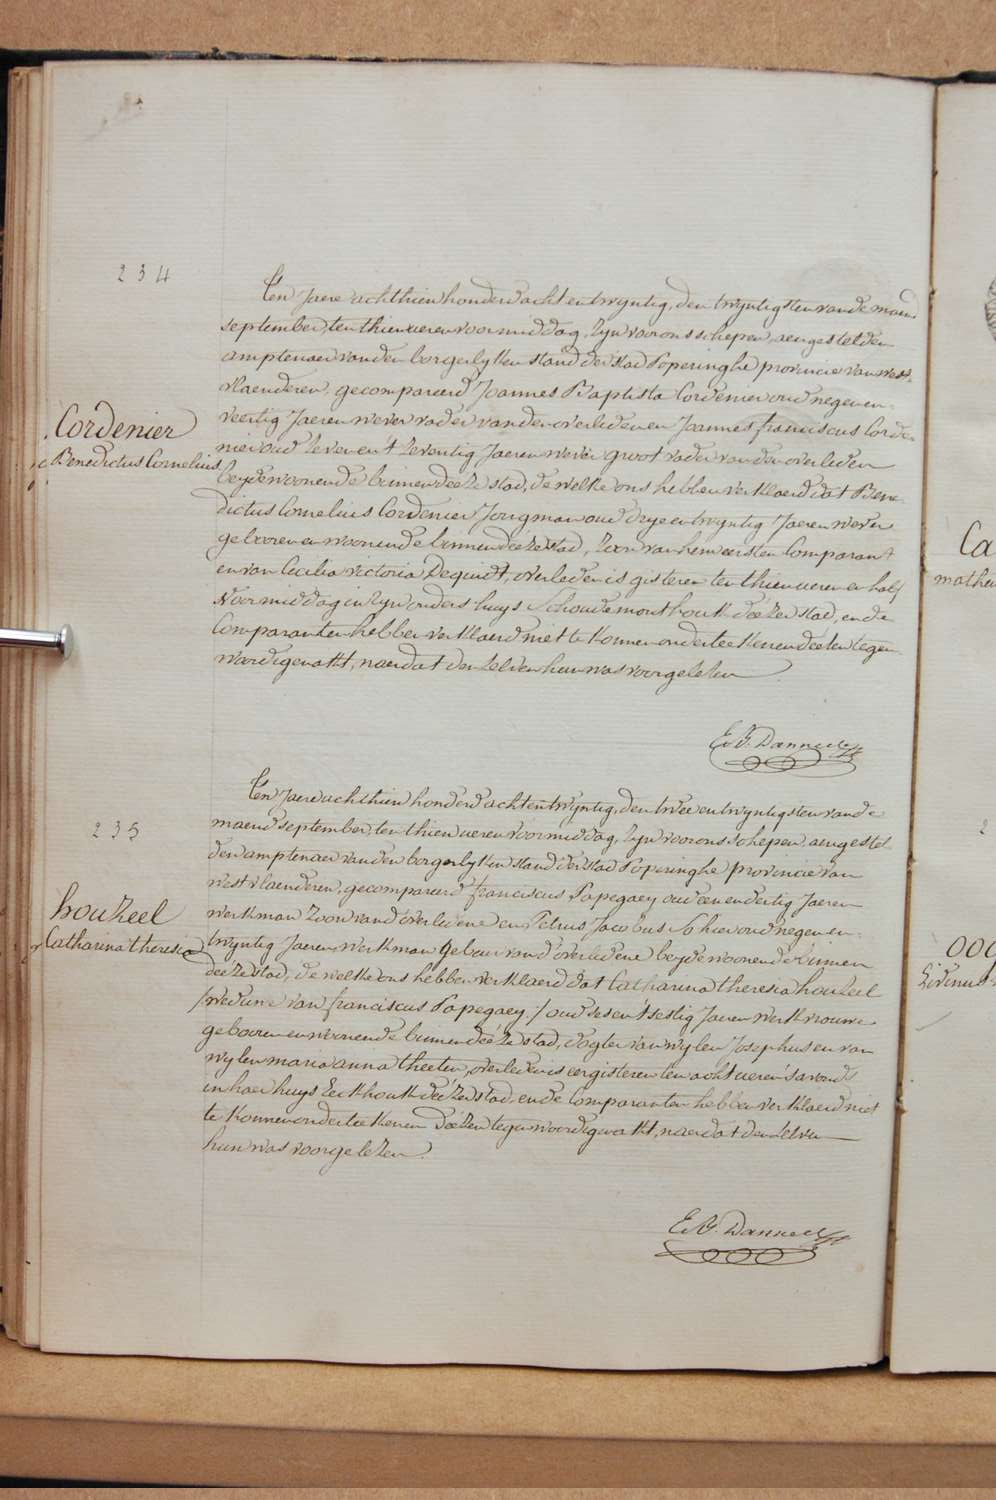 234
Ten Jaere achthien honderd acht en twyntig, den twyntigsten van de maend
september, ten thien ueren voormiddag, zyn voor ons schepen, aengestelden
amptenaer van den borgerlyken stand der stad Poperinghe provincie van west-
vlaenderen, gecompareerd Joannes Baptista Cordenier oud negen en
veertig Jaeren wever vader van den overledenen Joannes franciscus Corde-
nier oud zeven en t'zeventig Jaeren wever groot vader van den overleden
beyde woonende binnen deéze stad, de welke ons hebben verklaerd dat Bene-
dictus Cornelius Cordenier Jongman oud drye en twyntig Jaeren wever
gebooren en woonende binnen deéze stad, zoon van hem eersten Comparant
en van Cecilia victoria Dequidt, overleden is gisteren ten thien ueren en half
Voormiddag in zyn ouders huys Schoudemonthouk deéze stad, en de
Comparanten hebben verklaerd niet te konnen onderteekenen deéten tegen-
woordige nakt, naer dat den zelven hun was voorgelezen
Cordenier
Benedictus Cornelius
E.B. Danneel
235
Ten Jaere achthien honderd acht en twyntig, den twee en twyntigsten van de
maend september, ten thien ueren voormiddag, zyn voor ons schepen, aengestel-
den amptenaer van den borgerlyken stand der stad Poperinghe provincie van
westvlaenderen, gecompareerd franciscus Papegaey oud een en dertig Jaeren
werkman zoon van d'overledene en Petrus Jacobus Schier oud negen en
twyntig Jaeren werkman Gebuer van d'overledene beyde woonende binnen
deéze stad, de welke ons hebben verklaerd dat Catharina theresia houzeel
/weduwe van franciscus Papegaey./ oud ses en t'sestig Jaeren werkvrouwe
gebooren en woonende binnen deéze stad, dogter van wylen Josephus en van
wylen maria anna theeten, overleden is eergisteren ten acht ueren s'avonds
in haer huys Eekhouk deéze stad, en de Comparanten hebben verklaerd niet
te konnen onderteekenen deézen tegenwoordige nakt, naer dat den zelven
hun was voorgelezen.
houzeel
Catharina theresia
E.B. Danneel
Ca
mathe
2
OOG
Livinus